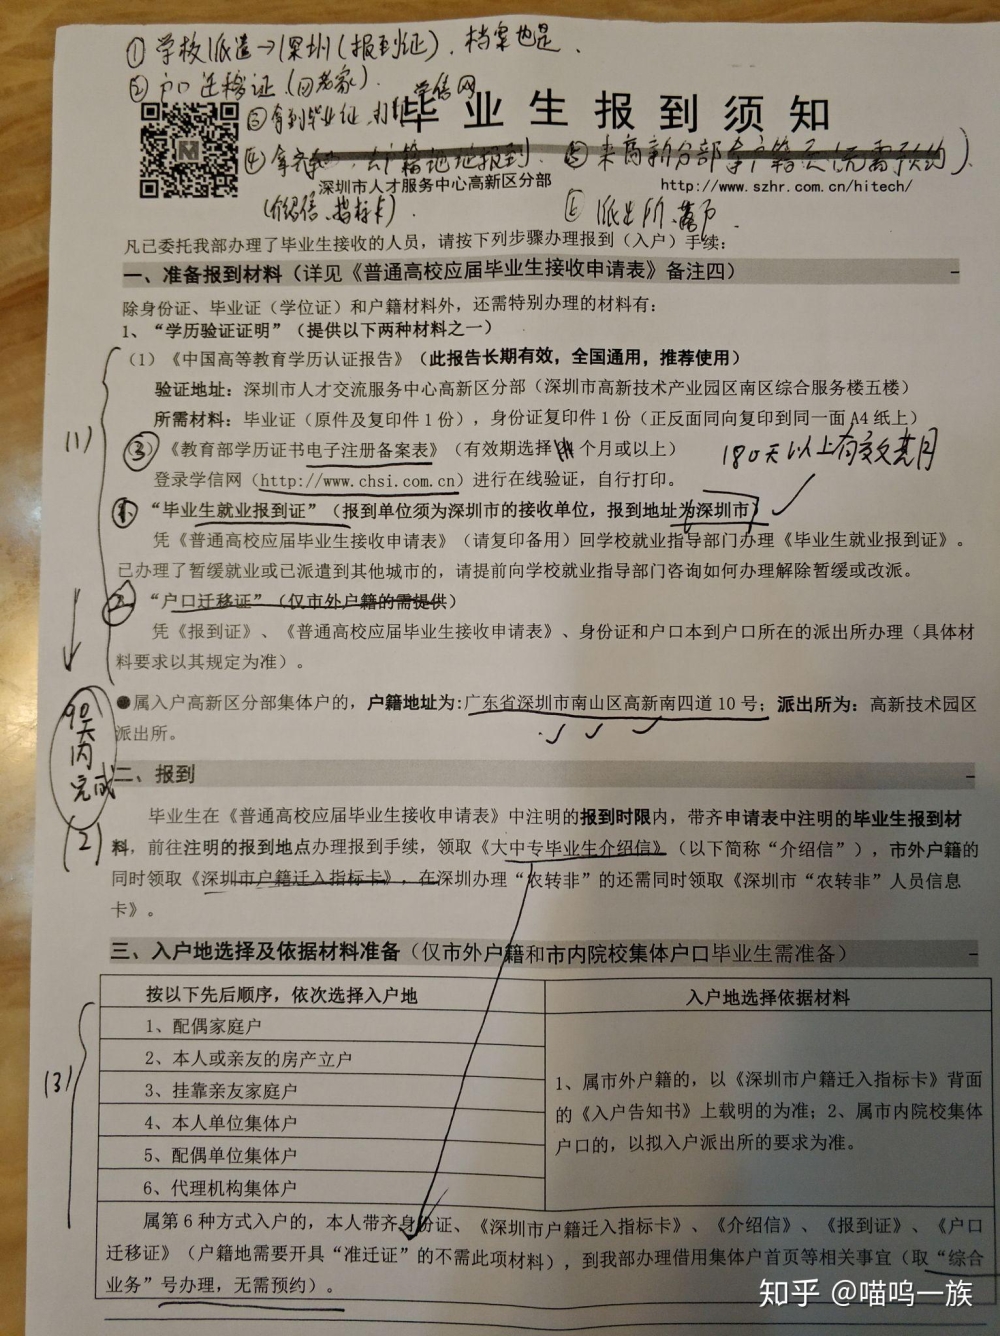 ① 学校派遣→深圳(报到证). 档案也是.
② 户口迁移证(回老家).
学信网
毕业生报到须知
③ 拿到毕业证, 打印
④ 拿齐
去户籍地址报到.
⑤ 来高新分部拿户籍页(无需预约)
深圳市人才服务中心高新区分部
http://www.szhr.com.cn/hitech/
(介绍信、指标卡).
⑥ 派出所. 落户.
凡已委托我部办理了毕业生接收的人员，请按下列步骤办理报到（入户）手续：
一、准备报到材料（详见《普通高校应届毕业生接收申请表》备注四）
除身份证、毕业证（学位证）和户籍材料外，还需特别办理的材料有：
1、“学历验证证明”（提供以下两种材料之一）
（1）《中国高等教育学历认证报告》（此报告长期有效，全国通用，推荐使用）
验证地址：深圳市人才交流服务中心高新区分部（深圳市高新技术产业园区南区综合服务楼五楼）
所需材料：毕业证（原件及复印件1份），身份证复印件1份（正反面同向复印到同一面A4纸上）
(1)
③《教育部学历证书电子注册备案表》（有效期选择 个月或以上）
180天以上有效
登录学信网（http://www.chsi.com.cn）进行在线验证，自行打印。
①“毕业生就业报到证”（报到单位须为深圳市的接收单位，报到地址为深圳市）
凭《普通高校应届毕业生接收申请表》（请复印备用）回学校就业指导部门办理《毕业生就业报到证》。
已办理了暂缓就业或已派遣到其他城市的，请提前向学校就业指导部门咨询如何办理解除暂缓或改派。
②“户口迁移证”（仅市外户籍的需提供）
凭《报到证》、《普通高校应届毕业生接收申请表》、身份证和户口本到户口所在的派出所办理（具体材
料要求以其规定为准）。
●属入户高新区分部集体户的，户籍地址为：广东省深圳市南山区高新南四道10号；派出所为：高新技术园区
派出所。
90天内完成
二、报到
(2)
毕业生在《普通高校应届毕业生接收申请表》中注明的报到时限内，带齐申请表中注明的毕业生报到材
料，前往注明的报到地点办理报到手续，领取《大中专毕业生介绍信》（以下简称“介绍信”），市外户籍的
同时领取《深圳市户籍迁入指标卡》，在深圳办理“农转非”的还需同时领取《深圳市“农转非”人员信息
卡》。
三、入户地选择及依据材料准备（仅市外户籍和市内院校集体户口毕业生需准备）
(3)
按以下先后顺序，依次选择入户地
入户地选择依据材料
1、配偶家庭户
2、本人或亲友的房产立户
3、挂靠亲友家庭户
4、本人单位集体户
5、配偶单位集体户
6、代理机构集体户
1、属市外户籍的，以《深圳市户籍迁入指标卡》背面
的《入户告知书》上载明的为准；2、属市内院校集体
户口的，以拟入户派出所的要求为准。
属第6种方式入户的，本人带齐身份证、《深圳市户籍迁入指标卡》、《介绍信》、《报到证》、《户口
迁移证》（户籍地需要开具“准迁证”的不需此项材料），到我部办理借用集体户首页等相关事宜（取“综合
业务”号办理，无需预约）。
知乎 @喵呜一族